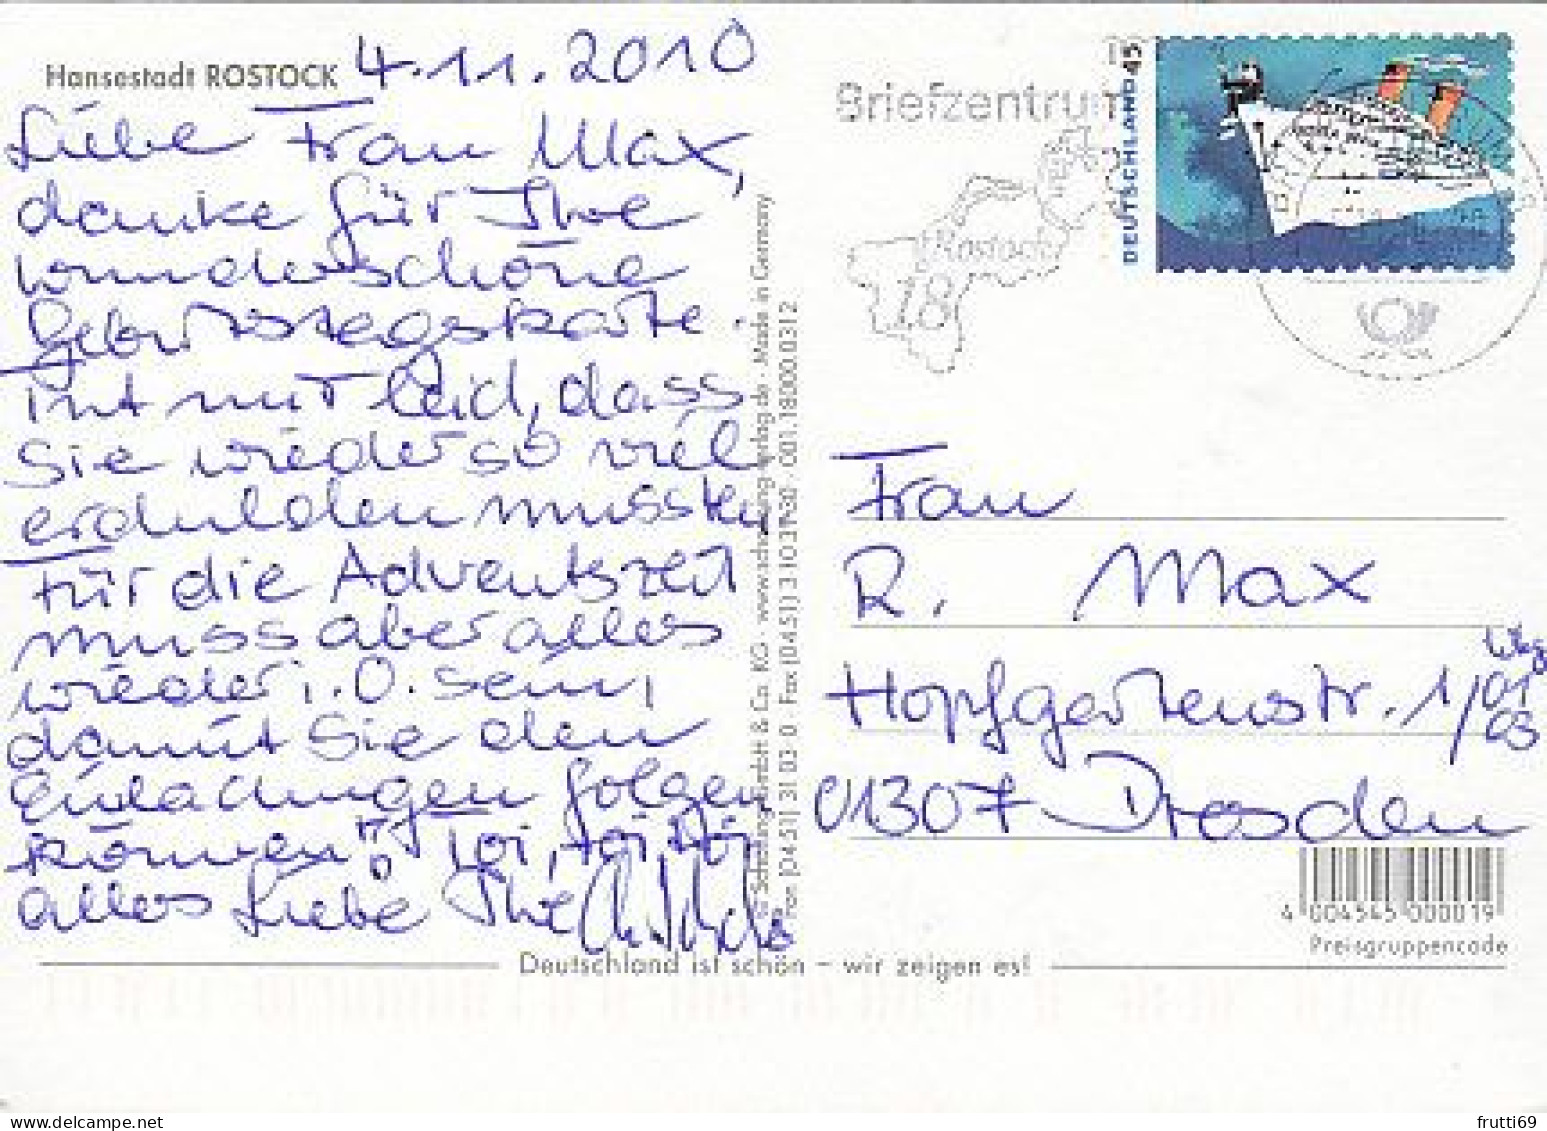 Hansestadt ROSTOCK 4.11.2010
Liebe Frau Max,
danke für Ihre
wunderschöne
Geburtstagskarte.
Tut mir leid, dass
Sie wieder so viel
erdulden mussten
Für die Adventszeit
muss aber alles
wieder i.O. sein,
damit Sie den
Einladungen folgen
können! Toi, toi, toi
alles Liebe Ihre
Deutschland ist schön – wir zeigen es!
© Schöning GmbH & Co. KG · www.schoening-verlag.de · Made in Germany
Fon (0451) 31 03 0 · Fax (0451) 3 10 31 30 · 001.18000.0312
Briefzentrum
Rostock
18
DEUTSCHLAND 45
Frau
R. Max
Hopfgartenstr. 1/01 03
Whg
01307 Dresden
4 004545 000019
Preisgruppencode
frutti69